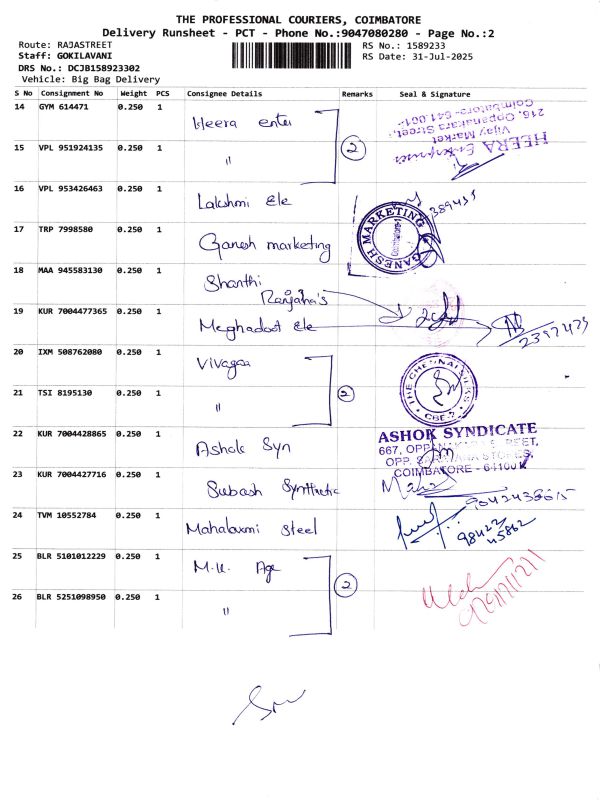 THE PROFESSIONAL COURIERS, COIMBATORE
Delivery Runsheet - PCT - Phone No.:9047080280 - Page No.:2
Route: RAJASTREET
RS No.: 1589233
Staff: GOKILAVANI
RS Date: 31-Jul-2025
DRS No.: DCJB158923302
Vehicle: Big Bag Delivery
S No Consignment No Weight PCS Consignee Details Remarks Seal & Signature
14 GYM 614471 0.250 1 Heera enter
HEERA Enterprises
Vijay Market
216, Oppanakara Street,
Coimbatore- 641 001.
15 VPL 951924135 0.250 1 "
2
16 VPL 953426463 0.250 1 Lakshmi Ele
389435
17 TRP 7998580 0.250 1 Ganesh marketing
GANESH MARKETING
Coimbatore-1
18 MAA 945583130 0.250 1 Shanthi
Ranjaha's
19 KUR 7004477365 0.250 1 Meghadoot Ele
2397479
20 IXM 508762080 0.250 1 Vivagaa
THE CHENNAI SILKS
CBE-
21 TSI 8195130 0.250 1 "
2
22 KUR 7004428865 0.250 1 Ashok Syn
ASHOK SYNDICATE
667, OPPANAKARA STREET,
OPP. STORES,
COIMBATORE - 641001
23 KUR 7004427716 0.250 1 Subash Synthetic
24 TVM 10552784 0.250 1 Mahalaxmi Steel
98422
45862
25 BLR 5101012229 0.250 1 M.K. Age
26 BLR 5251098950 0.250 1 "
2